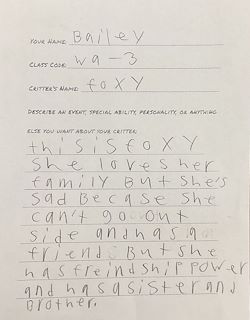 Your Name: Bailey
Class Code: wa-3
Critter's Name: foxy
Describe an event, special ability, personality, or anything
else you want about your critter:
this is foxy
she loves her
family But she's
sad Becase she
can't go out
side and has a
friend But she
has freindship power
and has a sister and
Brother.